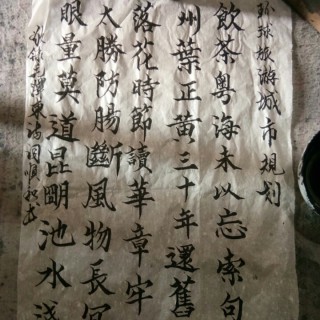 环球旅游城市規划
飲茶粤海未以忘索句
州葉正黄三十年還舊
落花時節讀華章牢
太勝防腸斷風物長宜
眼量莫道昆朙池水淺